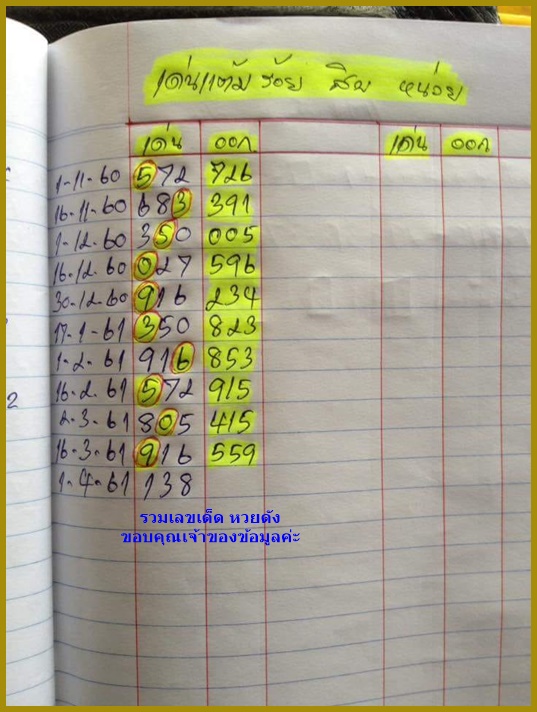 เด่นแต้ม ร้อย สิบ หน่วย
เด่น ออก เด่น ออก
1-11-60 572 726
16-11-60 683 391
1-12-60 350 005
16-12-60 027 596
30-12-60 916 234
17-1-61 350 823
1-2-61 916 853
16-2-61 572 915
2-3-61 805 415
16-3-61 916 559
1-4-61 138
รวมเลขเด็ด หวยดัง
ขอบคุณเจ้าของข้อมูลค่ะ
2